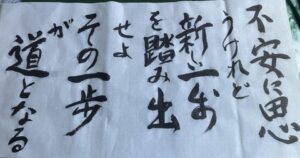 不安に思
うけれど
新しい一歩
を踏み出
せよ
その一歩
が
道となる